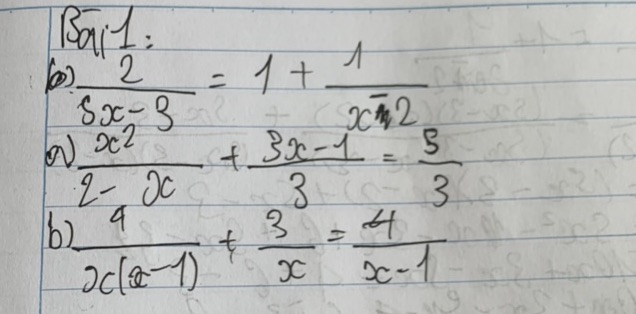 Bài 1:
b) 2/(5x-3) = 1 + 1/(x-2)
a) x²/(2-x) + (3x-1)/3 = 5/3
b) 4/(x(x-1)) + 3/x = 4/(x-1)